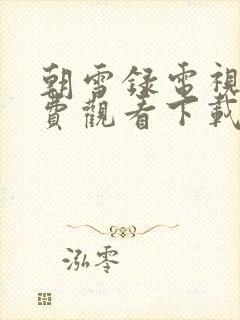 朝雪録電視
費觀看下載
泓零